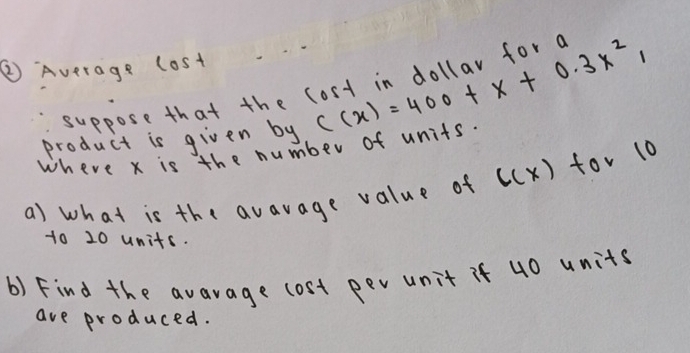 ② Average Cost ...
suppose that the cost in dollar for a
product is given by C(x) = 400 + x + 0.3x²,
where x is the number of units.
a) what is the avarage value of C(x) for 10
to 20 units.
b) Find the avarage cost per unit if 40 units
are produced.